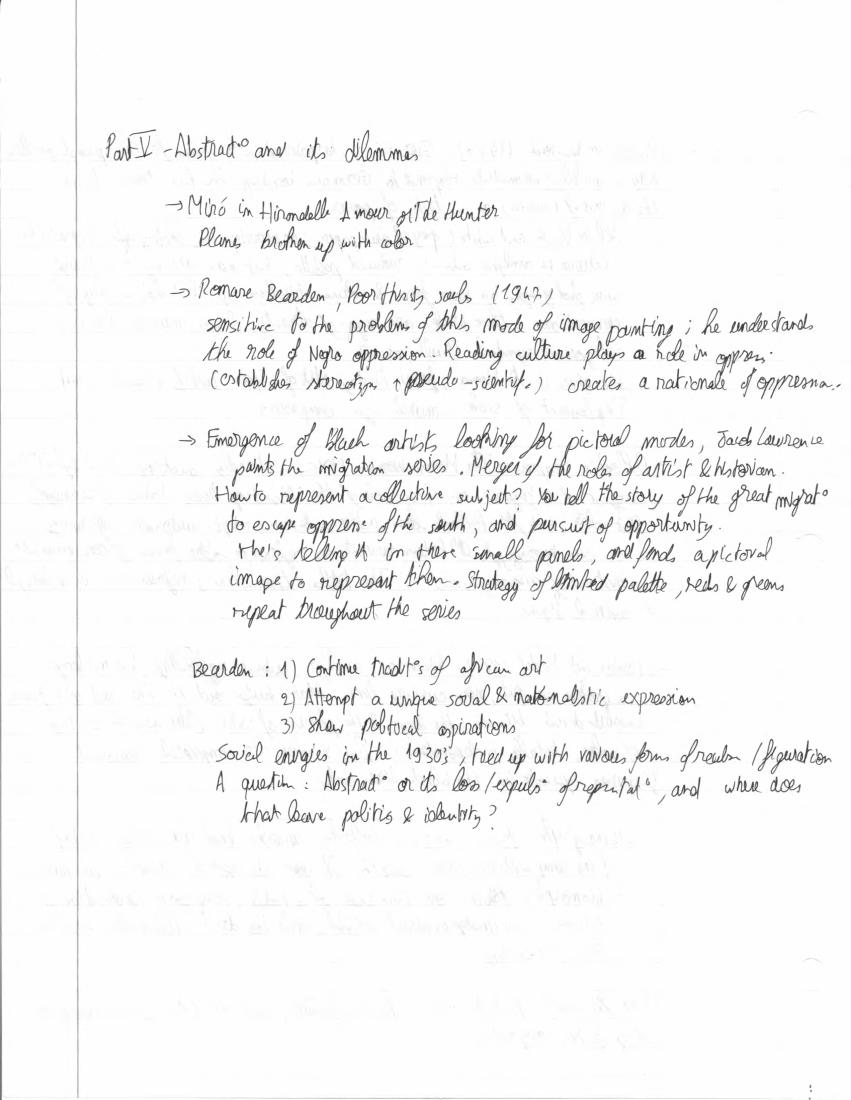 Part V - Abstract° and its dilemmas
→ Miró in Hirondelle Amour or The Hunter
Planes broken up with color
→ Romare Bearden, Poor thirsty souls (1947)
sensitive to the problem of this mode of image painting ; he understands
the role of Negro oppression. Reading culture plays a role in oppres.
(establishes stereotypes ↑ pseudo-scientif.) creates a rationale of oppress
→ Emergence of black artists looking for pictoral modes, Jacob Lawrence
paints the migration series. Merger of the roles of artist & historian.
How to represent a collective subject? You tell the story of the great migrat°
to escape oppress° of the south, and pursuit of opportunity.
He's telling it in these small panels, and finds a pictoral
image to represent them. Strategy of limited palette, reds & greens
repeat throughout the series
Bearden : 1) Continue tradit°s of african art
2) Attempt a unique social & nationalistic expression
3) Show political aspirations
Social energies in the 1930's, tied up with various forms of realism / figuration
A question : Abstract° or its loss/expuls° of represtat°, and where does
that leave politis & identity?